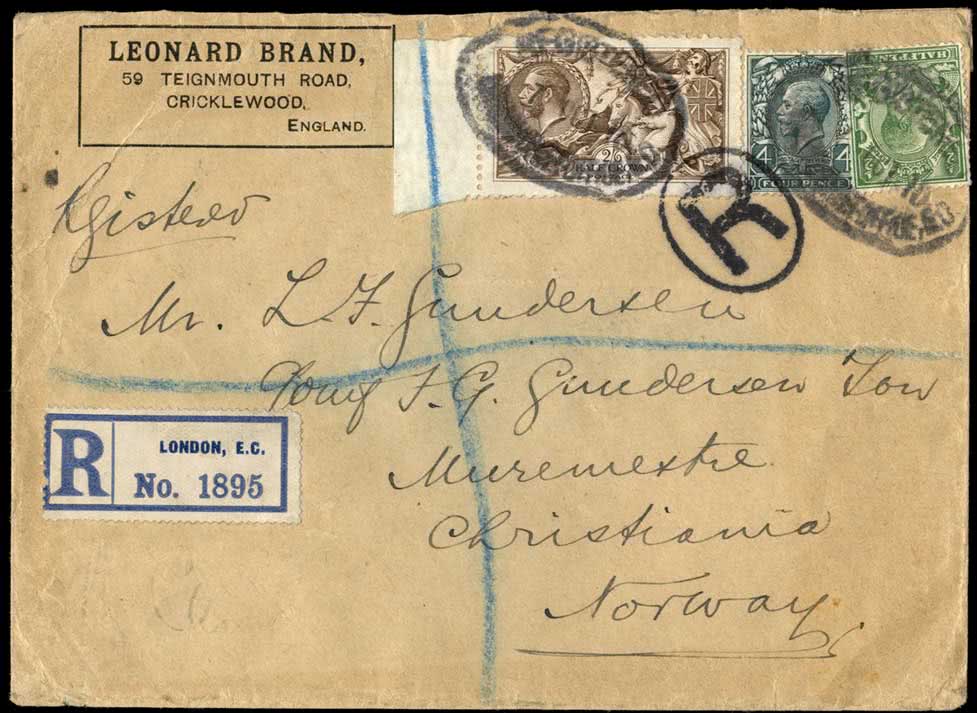 LEONARD BRAND,
59 TEIGNMOUTH ROAD,
CRICKLEWOOD,
ENGLAND.
2/6
HALF CROWN
4 4
FOUR PENCE
HALFPENNY
½ ½
R
Registered
Mr. L. F. Gundersen
T. G. Gundersen
R
LONDON, E.C.
No. 1895
Muremestre
Christiania
Norway